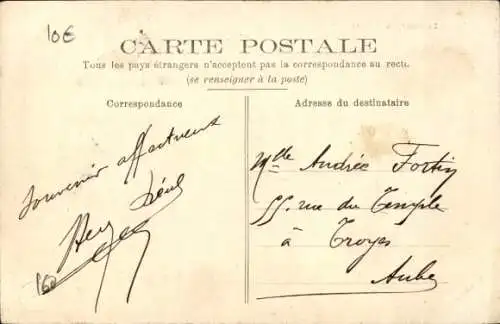 10€
CARTE POSTALE
Tous les pays étrangers n'acceptent pas la correspondance au recto
(se renseigner à la poste)
Correspondance
Adresse du destinataire
Souvenir affectueux
Mlle Andrée Fortin
55. rue du Temple
à Troyes
Aube